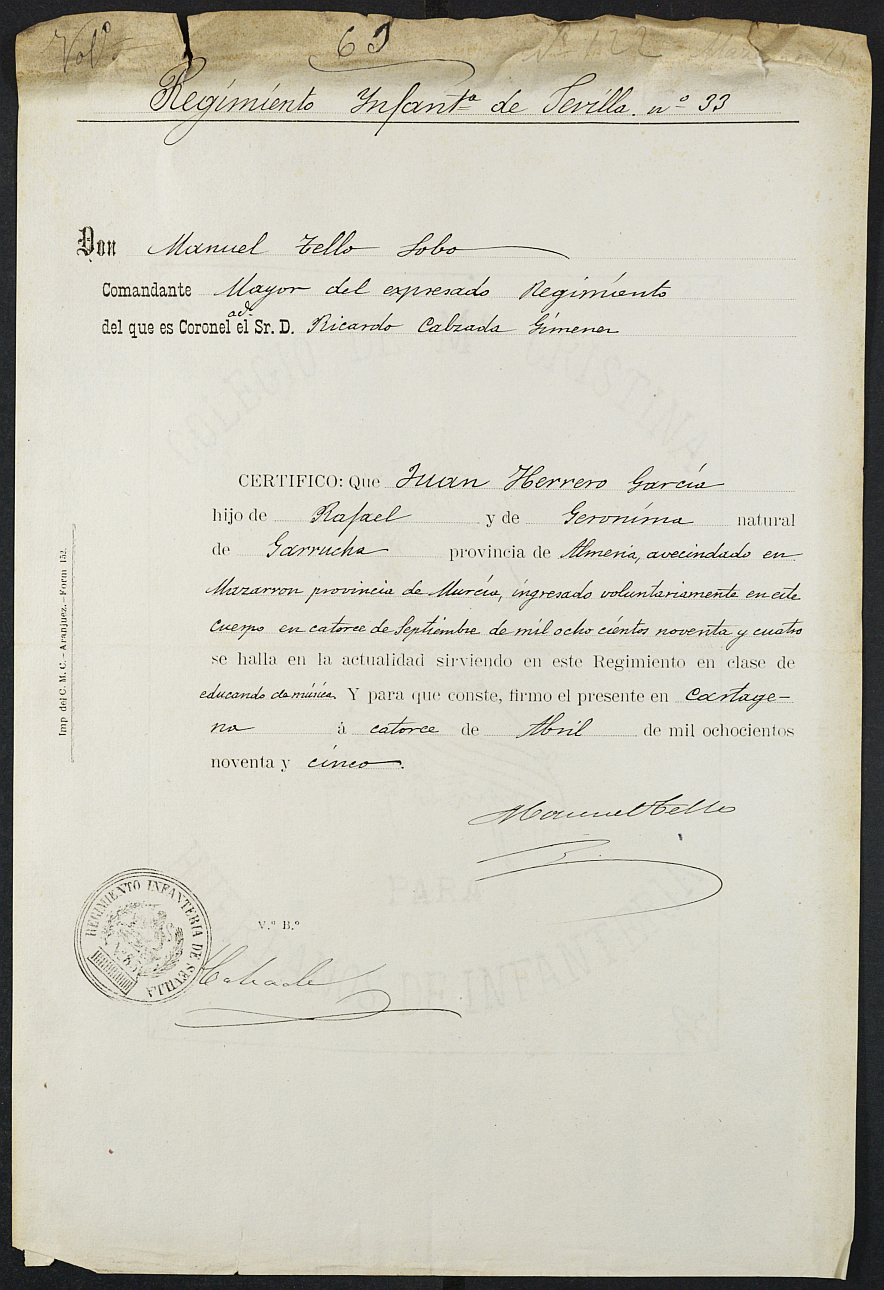 Vol.º
63
Nº 122
Regimiento Infantª de Sevilla. nº 33
Don Manuel Tello Lobo
Comandante Mayor del expresado Regimiento
del que es Coronel acl. el Sr. D. Ricardo Calzada Gimenez
CERTIFICO: Que Juan Herrero García
hijo de Rafael y de Geronima natural
de Garrucha provincia de Almeria, avecindado en
Mazarron provincia de Murcia, ingresado voluntariamente en este
cuerpo en catorce de Septiembre de mil ocho cientos noventa y cuatro
se halla en la actualidad sirviendo en este Regimiento en clase de
educando de música. Y para que conste, firmo el presente en Cartage-
na á catorce de Abril de mil ochocientos
noventa y cinco.
Manuel Tello
V.º B.º
Calzada
REGIMIENTO INFANTERIA DE SEVILLA
Imp del C. M. C. - Aranjuez. - Form 152.
COLEGIO CRISTINA
PARA
DE INFANTERIA